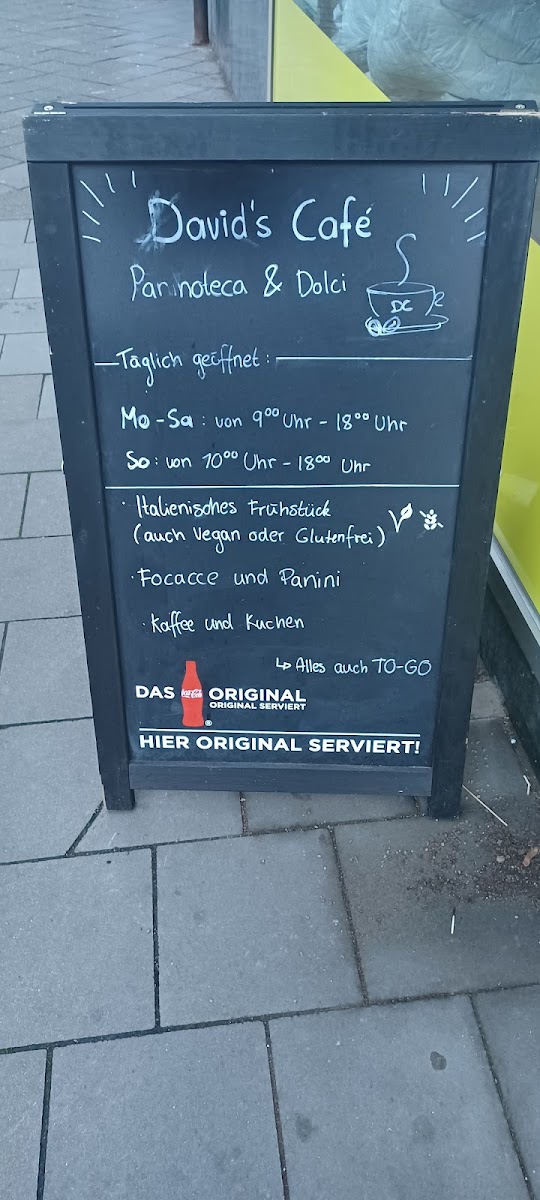 David's Café
Paninoteca & Dolci
DC
Täglich geöffnet:
Mo-Sa: von 9⁰⁰ Uhr - 18⁰⁰ Uhr
So: von 10⁰⁰ Uhr - 18⁰⁰ Uhr
· Italienisches Frühstück
(auch Vegan oder Glutenfrei)
· Focacce und Panini
· Kaffee und Kuchen
↳ Alles auch TO-GO
DAS Coca-Cola ORIGINAL
ORIGINAL SERVIERT
®
HIER ORIGINAL SERVIERT!